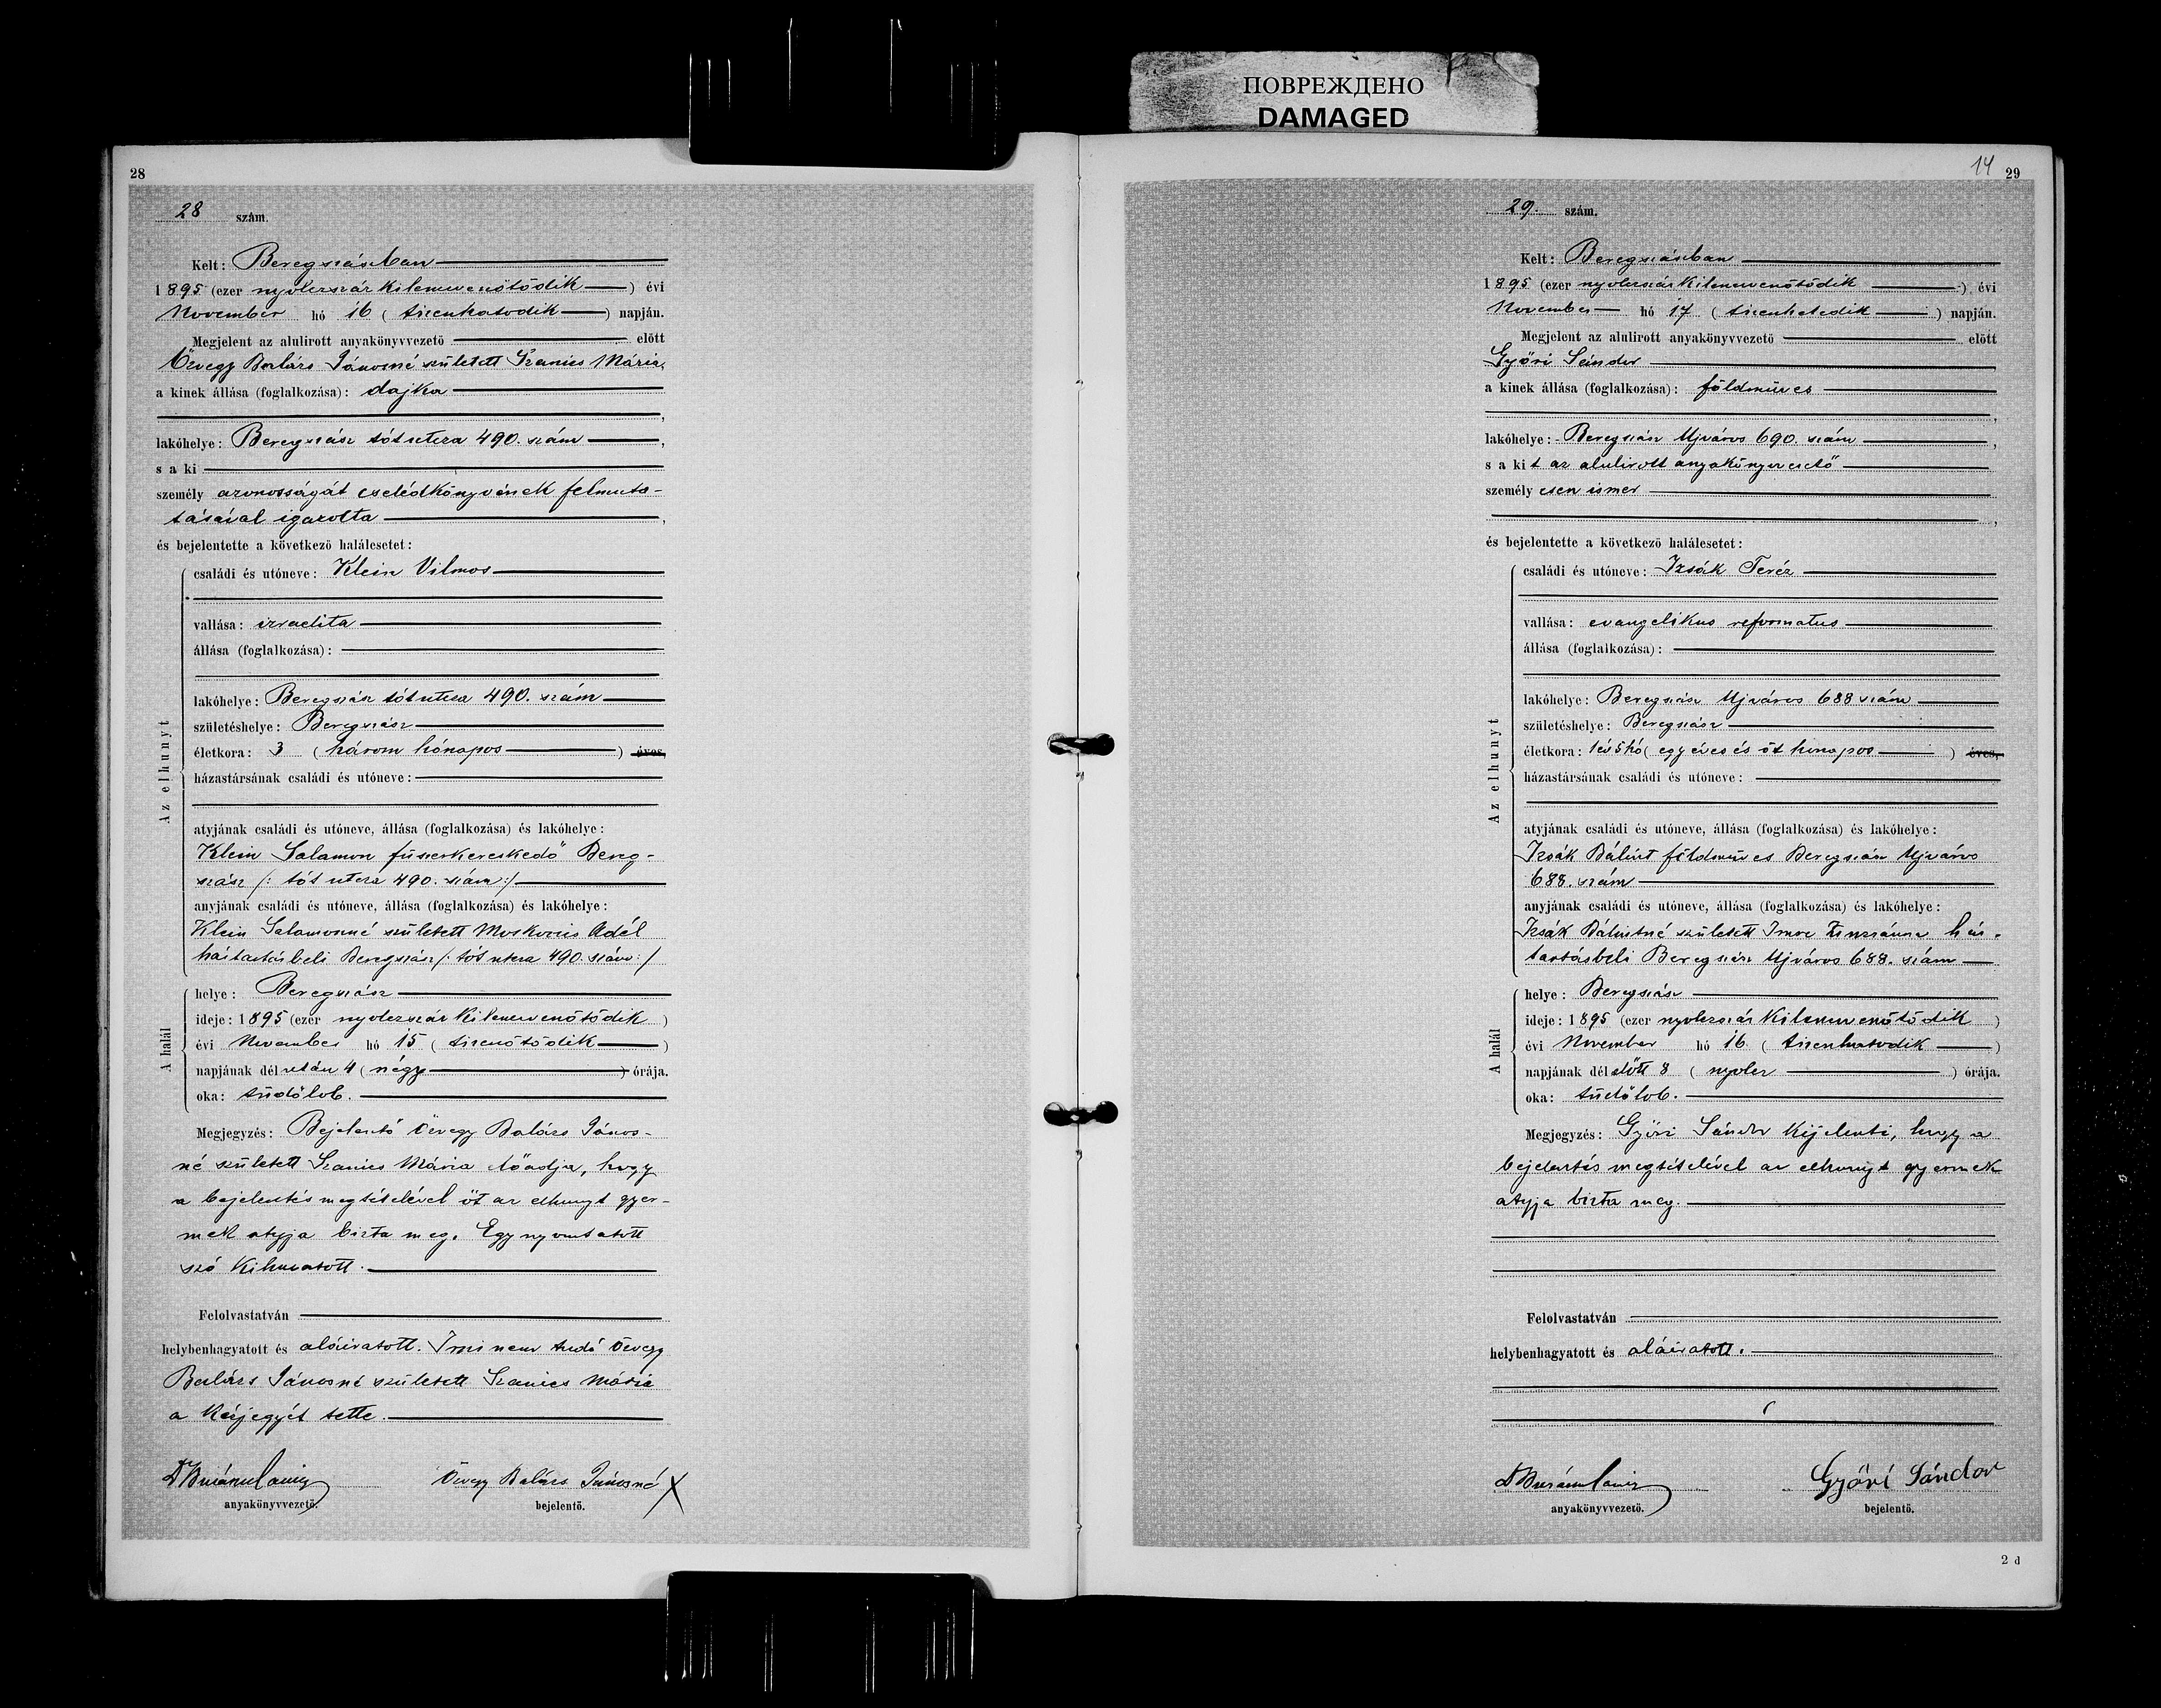 ПОВРЕЖДЕНО
DAMAGED
28
28 szám.
Kelt: Beregszászban
1895 (ezer nyolczszázkilenczvenötödik) évi
November hó 16 (tizenhatodik) napján.
Megjelent az alulirott anyakönyvvezető előtt
Özvegy Balázs Jánosné született Szanics Mária,
a kinek állása (foglalkozása): dajka
,
lakóhelye: Beregszász tót utcza 490. szám,
s a ki
személy azonosságát cselédkönyvének felmuta-
tásával igazolta,
és bejelentette a következő halálesetet:
Az elhunyt
családi és utóneve: Klein Vilmos
vallása: izraelita
állása (foglalkozása):
lakóhelye: Beregszász tót utcza 490. szám
születéshelye: Beregszász
életkora: 3 (három hónapos) éves,
házastársának családi és utóneve:
atyjának családi és utóneve, állása (foglalkozása) és lakóhelye:
Klein Salamon füszerkereskedő Bereg-
szász /: tót utcza 490. szám :/
anyjának családi és utóneve, állása (foglalkozása) és lakóhelye:
Klein Salamonné született Moskovics Adél
háztartásbeli Beregszász /: tót utcza 490. szám :/
A halál
helye: Beregszász
ideje: 1895 (ezer nyolczszázkilenczvenötödik)
évi November hó 15 (tizenötödik)
napjának dél után 4 (négy) órája.
oka: tüdőlob.
Megjegyzés: Bejelentő özvegy Balázs János-
né született Szanics Mária előadja, hogy
a bejelentés megtételével őt az elhunyt gyer-
mek atyja bizta meg. Egy nyomtatott
szó kihuzatott.
Felolvastatván
helybenhagyatott és aláiratott. Irni nem tudó özvegy
Balázs Jánosné született Szanics Mária
a kézjegyét tette.
Özvegy Balázs Jánosné X
anyakönyvvezető. bejelentő.
14 29
29. szám.
Kelt: Beregszászban
1895 (ezer nyolczszázkilenczvenötödik) évi
November hó 17 (tizenhetedik) napján.
Megjelent az alulirott anyakönyvvezető előtt
Győri Sándor
a kinek állása (foglalkozása): földmüves
,
lakóhelye: Beregszász Ujváros 690. szám,
s a kit az alulirott anyakönyvvezető
személyesen ismer
,
és bejelentette a következő halálesetet:
Az elhunyt
családi és utóneve: Izsák Teréz
vallása: evangelikus reformatus
állása (foglalkozása):
lakóhelye: Beregszász Ujváros 688 szám
születéshelye: Beregszász
életkora: 1 év 5 hó (egy éves és öt hónapos) éves,
házastársának családi és utóneve:
atyjának családi és utóneve, állása (foglalkozása) és lakóhelye:
Izsák Bálint földmüves Beregszász Ujváros
688. szám
anyjának családi és utóneve, állása (foglalkozása) és lakóhelye:
Izsák Bálintné született Imre Zsuzsánna ház-
tartásbeli Beregszász Ujváros 688. szám
A halál
helye: Beregszász
ideje: 1895 (ezer nyolczszázkilenczvenötödik)
évi November hó 16 (tizenhatodik)
napjának dél előtt 8 (nyolcz) órája.
oka: tüdőlob.
Megjegyzés: Győri Sándor kijelenti, hogy a
bejelentés megtételével az elhunyt gyermek
atyja bizta meg.
Felolvastatván
helybenhagyatott és aláiratott.
Győri Sándor
anyakönyvvezető. bejelentő.
2 d